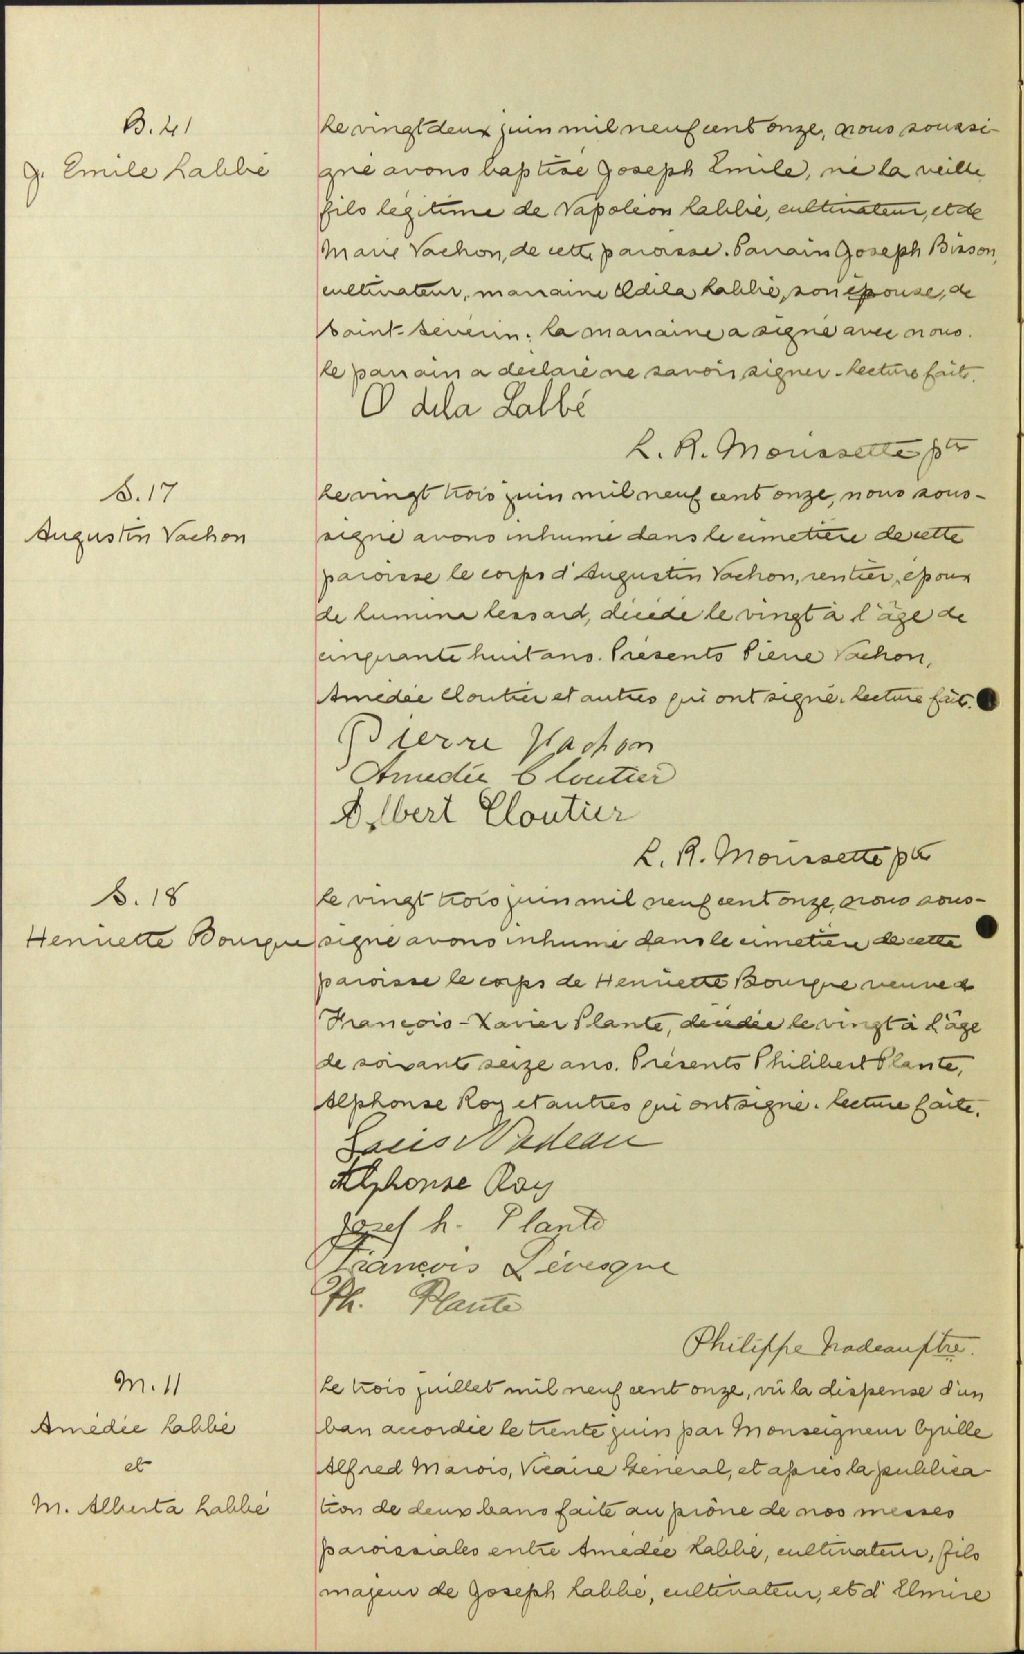 B. 41
J. Emile Labbé
Le vingt deux juin mil neuf cent onze, nous soussi-
gné avons baptisé Joseph Emile, né la veille
fils légitime de Napoléon Labbé, cultivateur, et de
Marie Vachon, de cette paroisse. Parrain Joseph Bisson,
cultivateur, marraine Odila Labbé, son épouse, de
Saint-Séverin. La marraine a signé avec nous.
Le parrain a déclaré ne savoir signer. Lecture faite.
Odila Labbé
L. R. Morissette ptre
S. 17
Augustin Vachon
Le vingt trois juin mil neuf cent onze, nous sous-
signé avons inhumé dans le cimetière de cette
paroisse le corps d'Augustin Vachon, rentier, époux
de Lumina Lessard, décédé le vingt à l'âge de
cinquante huit ans. Présents Pierre Vachon,
Amédée Cloutier et autres qui ont signé. Lecture faite.
Pierre Vachon
Amedée Cloutier
Albert Cloutier
L. R. Morissette ptre
S. 18
Henriette Bourque
Le vingt trois juin mil neuf cent onze, nous sous-
signé avons inhumé dans le cimetière de cette
paroisse le corps de Henriette Bourque veuve de
François-Xavier Plante, décédée le vingt à l'âge
de soixante seize ans. Présents Philibert Plante,
Alphonse Roy et autres qui ont signé. Lecture faite.
Louis Nadeau
Alphonse Roy
Josef h. Plante
François Lévesque
Ph. Plante
Philippe Nadeau ptre.
M. 11
Amédée Labbé
et
M. Alberta Labbé
Le trois juillet mil neuf cent onze, vû la dispense d'un
ban accordée le trente juin par Monseigneur Cyrille
Alfred Marois, Vicaire Général, et après la publica-
tion de deux bans faite au prône de nos messes
paroissiales entre Amédée Labbé, cultivateur, fils
majeur de Joseph Labbé, cultivateur, et d'Elmire